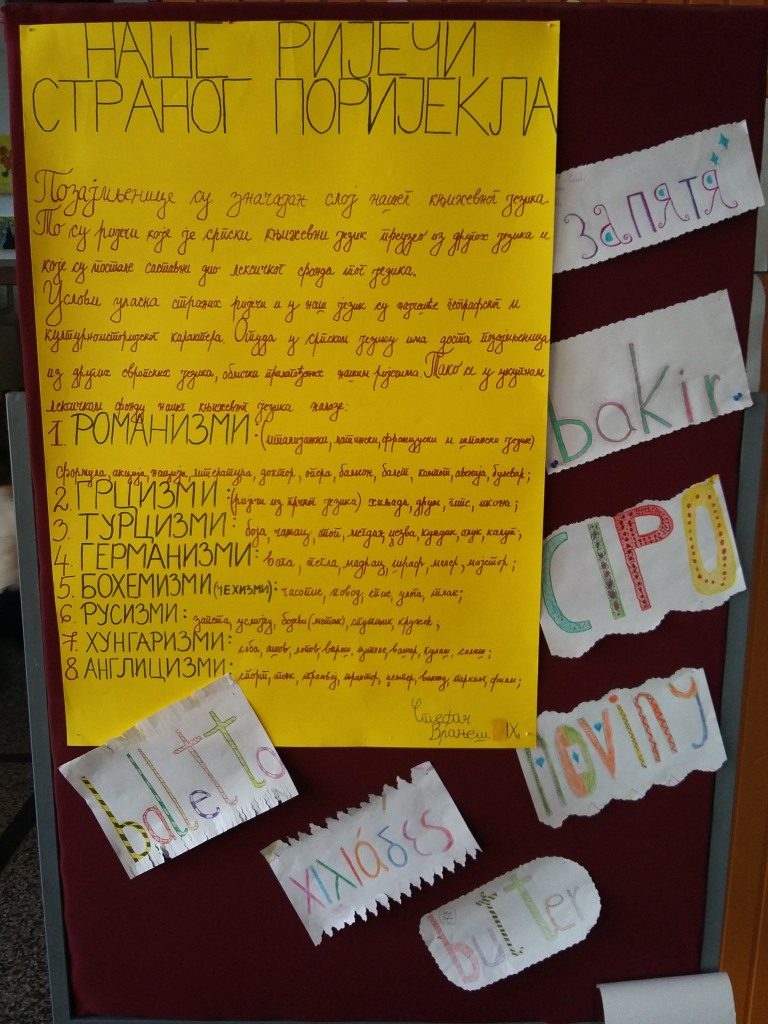 НАШЕ РИЈЕЧИ
СТРАНОГ ПОРИЈЕКЛА
Позајмљенице су значајан слој нашег књижевног језика.
То су ријечи које је српски књижевни језик преузео из других језика и
које су постале саставни дио лексичког фонда тог језика.
Услови уласка страних ријечи и у наш језик су најчешће географског и
културноисторијског карактера. Отуда у српском језику има доста позајмљеница
из других европских језика, облички прилагођених нашим ријечима. Тако се у укупном
лексичком фонду нашег књижевног језика налазе:
1. РОМАНИЗМИ: (италијански, латински, француски и шпански језик)
формула, акција, нација, литература, доктор, опера, балкон, балет, капут, авенија, булевар;
2. ГРЦИЗМИ: (ријечи из грчког језика) хиљада, друм, гипс, икона;
3. ТУРЦИЗМИ: боја, чамац, топ, мегдан, џезва, кундак, калуп;
4. ГЕРМАНИЗМИ: вата, пегла, мадрац, шраф, молер, мајстор;
5. БОХЕМИЗМИ (ЧЕХИЗМИ): часопис, повод, спис, улога, тлак;
6. РУСИЗМИ: запета, спутник, кружок;
7. ХУНГАРИЗМИ: соба, ашов, лопов, варош, ципеле, вашар, гулаш, салаш;
8. АНГЛИЦИЗМИ: спорт, тенк, трамвај, трактор, викенд, паркинг, филм;
Стефан
Врањеш IX₁
запятя
bakir
CIPO
noviny
balletto
χιλιάδες
butter